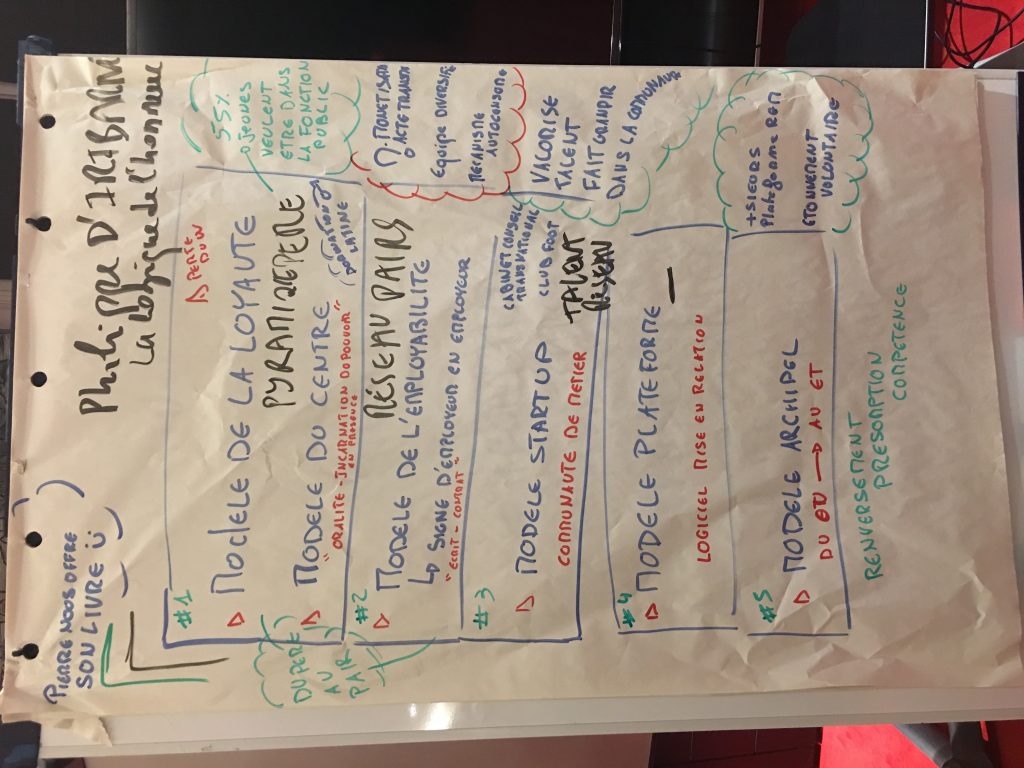 PIERRE NOUS OFFRE
SON LIVRE
Philippe D'IRIBARNE
La Logique de l'honneur
#1
MODELE DE LA LOYAUTE
PERTE
D'UN
PYRAMIDE PERE
MODELE DU CENTRE
"ORALITE-INCARNATION DU POUVOIR"
OU PRESENCE
55%
D JEUNES
VEULENT
ETRE DANS
LA FONCTION
PUBLIC
DU PERE
AU
PAIR
#2
RÉSEAU PAIRS
MODELE DE L'EMPLOYABILITE
↳ SIGNE D'EMPLOYEUR EN EMPLOYEUR
"ECRIT - COMBAT"
EQUIPE DIVERSIFIE
#3
MODELE START UP
COMMUNAUTE DE METIER
CABINET CONSEIL
CLUB FOOT
TALENT
RESEAU
VALORISE
TALENT
FAIT GRANDIR
DANS LA COMMUNAUTÉ
#4
MODELE PLATEFORME
LOGICIEL MISE EN RELATION
#5
MODELE ARCHIPEL
DU ETU → AU ET
+SIEURS
ETONNEMENT
VOLONTAIRE
RENVERSEMENT
PRESOMPTION
COMPETENCE